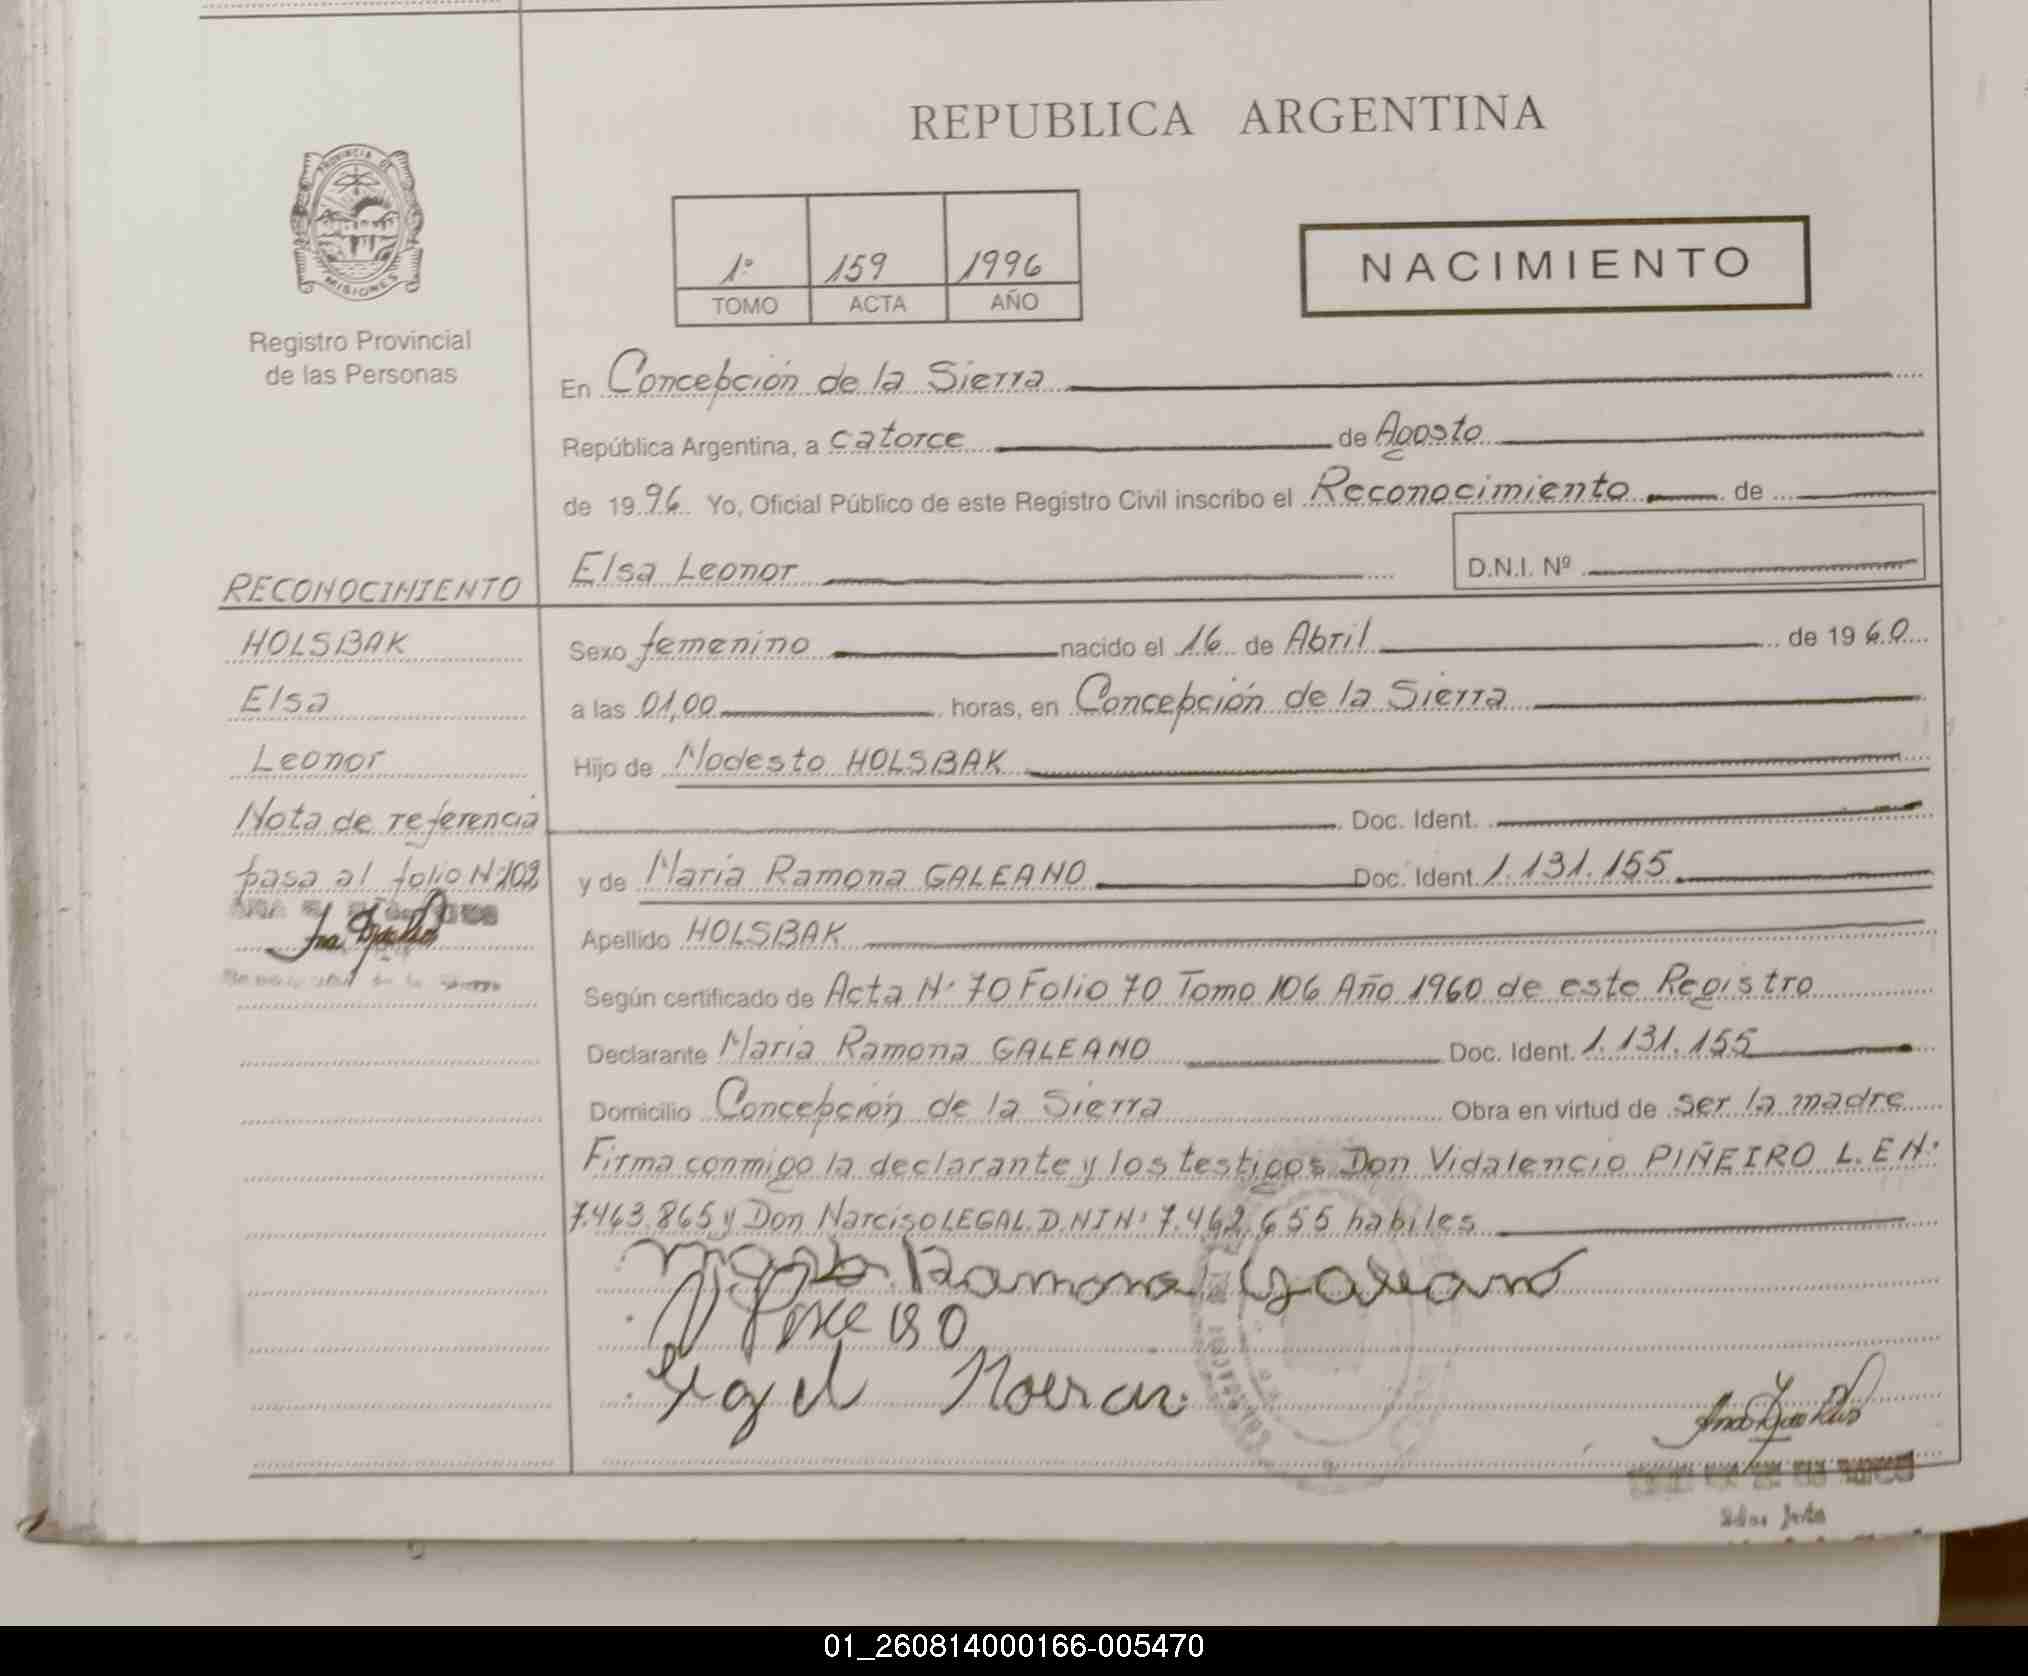 REPUBLICA ARGENTINA
PROVINCIA DE
MISIONES
Registro Provincial
de las Personas
1º 159 1996
TOMO ACTA AÑO
NACIMIENTO
En Concepción de la Sierra
República Argentina, a catorce de Agosto
de 1996. Yo, Oficial Público de este Registro Civil inscribo el Reconocimiento de
Elsa Leonor D.N.I. Nº
RECONOCIMIENTO
HOLSBAK
Elsa
Leonor
Nota de referencia
pasa al folio Nº 102
Sexo femenino nacido el 16 de Abril de 1960
a las 01,00 horas, en Concepción de la Sierra
Hijo de Modesto HOLSBAK
Doc. Ident.
y de Maria Ramona GALEANO Doc. Ident. 1.131.155
Apellido HOLSBAK
Según certificado de Acta Nº 70 Folio 70 Tomo 106 Año 1960 de este Registro
Declarante Maria Ramona GALEANO Doc. Ident. 1.131.155
Domicilio Concepción de la Sierra Obra en virtud de ser la madre
Firma conmigo la declarante y los testigos Don Vidalencio PIÑEIRO L.E Nº
7.463.865 y Don Narciso LEGAL D.N.I Nº 7.462.655 habiles
Maria Ramona Galeano
01_260814000166-005470